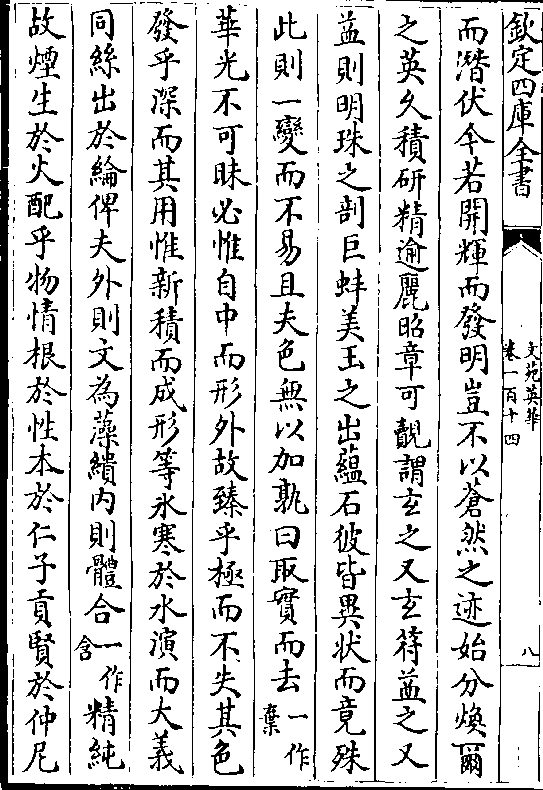 欽定四庫全書
文苑英華
卷一百十四
八
而潛伏今若開輝而發明豈不以蒼然之迹始分煥爾
之英久積研精逾麗昭章可覩謂玄之又玄符益之又
益則明珠之剖巨蚌美玉之出蘊石彼皆異狀而竟殊
此則一變而不易且夫色無以加孰曰取實而去一作棄
華光不可昧必惟自中而形外故臻乎極而不失其色
發乎深而其用惟新積而成形等氷寒於水演而大義
同絲出於綸俾夫外則文為藻繢内則體合一作含精純
故煙生於火配乎物情根於性本於仁子貢賢於仲尼